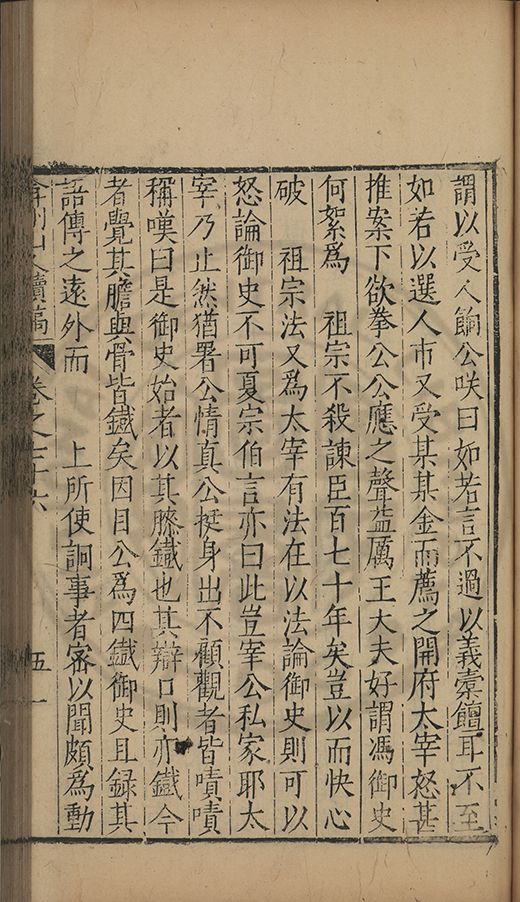 謂以受人餉公咲曰如若言不過以義橐饘耳不至
如若以選人市又受某某金而薦之開府太宰怒甚
推案下欲拳公公應之聲益厲王大夫好謂馮御史
何絮為　祖宗不殺諫臣百七十年矣豈以而快心
破　祖宗法又為太宰有法在以法論御史則可以
怒論御史不可夏宗伯言亦曰此豈宰公私家耶太
宰乃止然猶署公情真公挺身出不顧觀者皆嘖嘖
稱嘆曰是御史始者以其膝鐡也其辯口則亦鐡今
者覺其膽與骨皆鐡矣因目公為四鐡御史且録其
語傳之遠外而　上所使詗事者密以聞頗為動
弇州山人續稿　卷之　十六　五